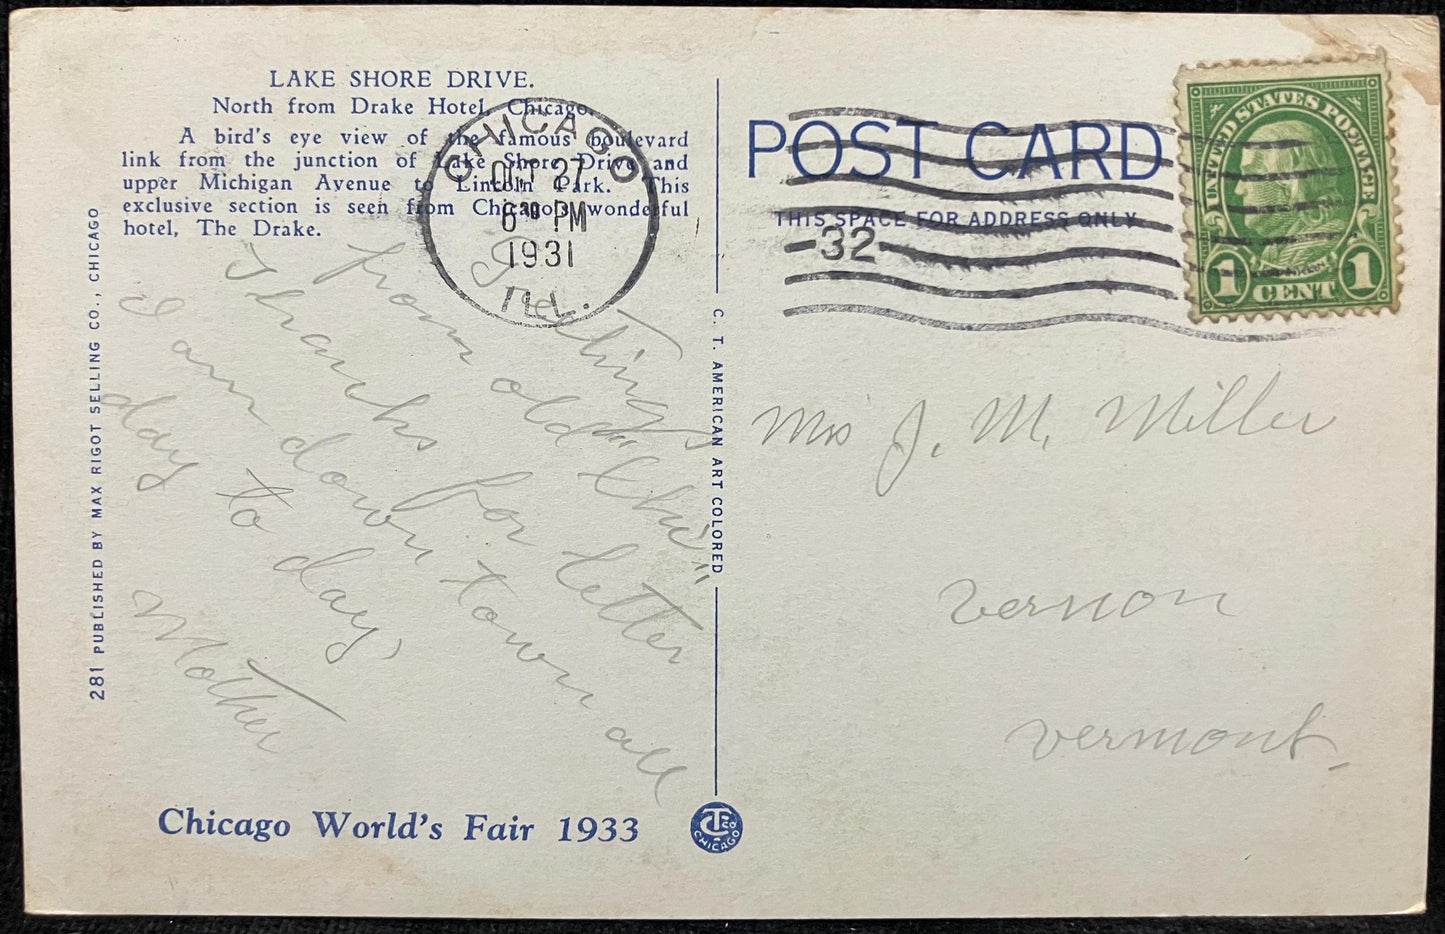 LAKE SHORE DRIVE.
North from Drake Hotel, Chicago.
A bird's eye view of the famous boulevard
link from the junction of Lake Shore Drive and
upper Michigan Avenue to Lincoln Park. This
exclusive section is seen from Chicago's wonderful
hotel, The Drake.
CHICAGO
OCT 27
6 30 PM
1931
ILL.
Greetings
from old "Chi"
Thanks for letter
I am down town all
day to day,
Mother
281 PUBLISHED BY MAX RIGOT SELLING CO., CHICAGO
Chicago World's Fair 1933
C. T. AMERICAN ART COLORED
CT CO
CHICAGO
POST CARD
THIS SPACE FOR ADDRESS ONLY
32
UNITED STATES POSTAGE
1 CENT 1
Mrs J. M. Miller
Vernon
Vermont.